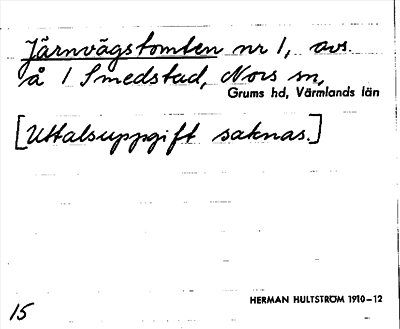 Järnvägstomten nr 1, avs.
å 1 Smedstad, Nors sn,
Grums hd, Värmlands län
[Uttalsuppgift saknas.]
HERMAN HULTSTRÖM 1910-12
15